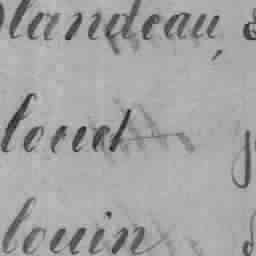 landeau,
louet
louin